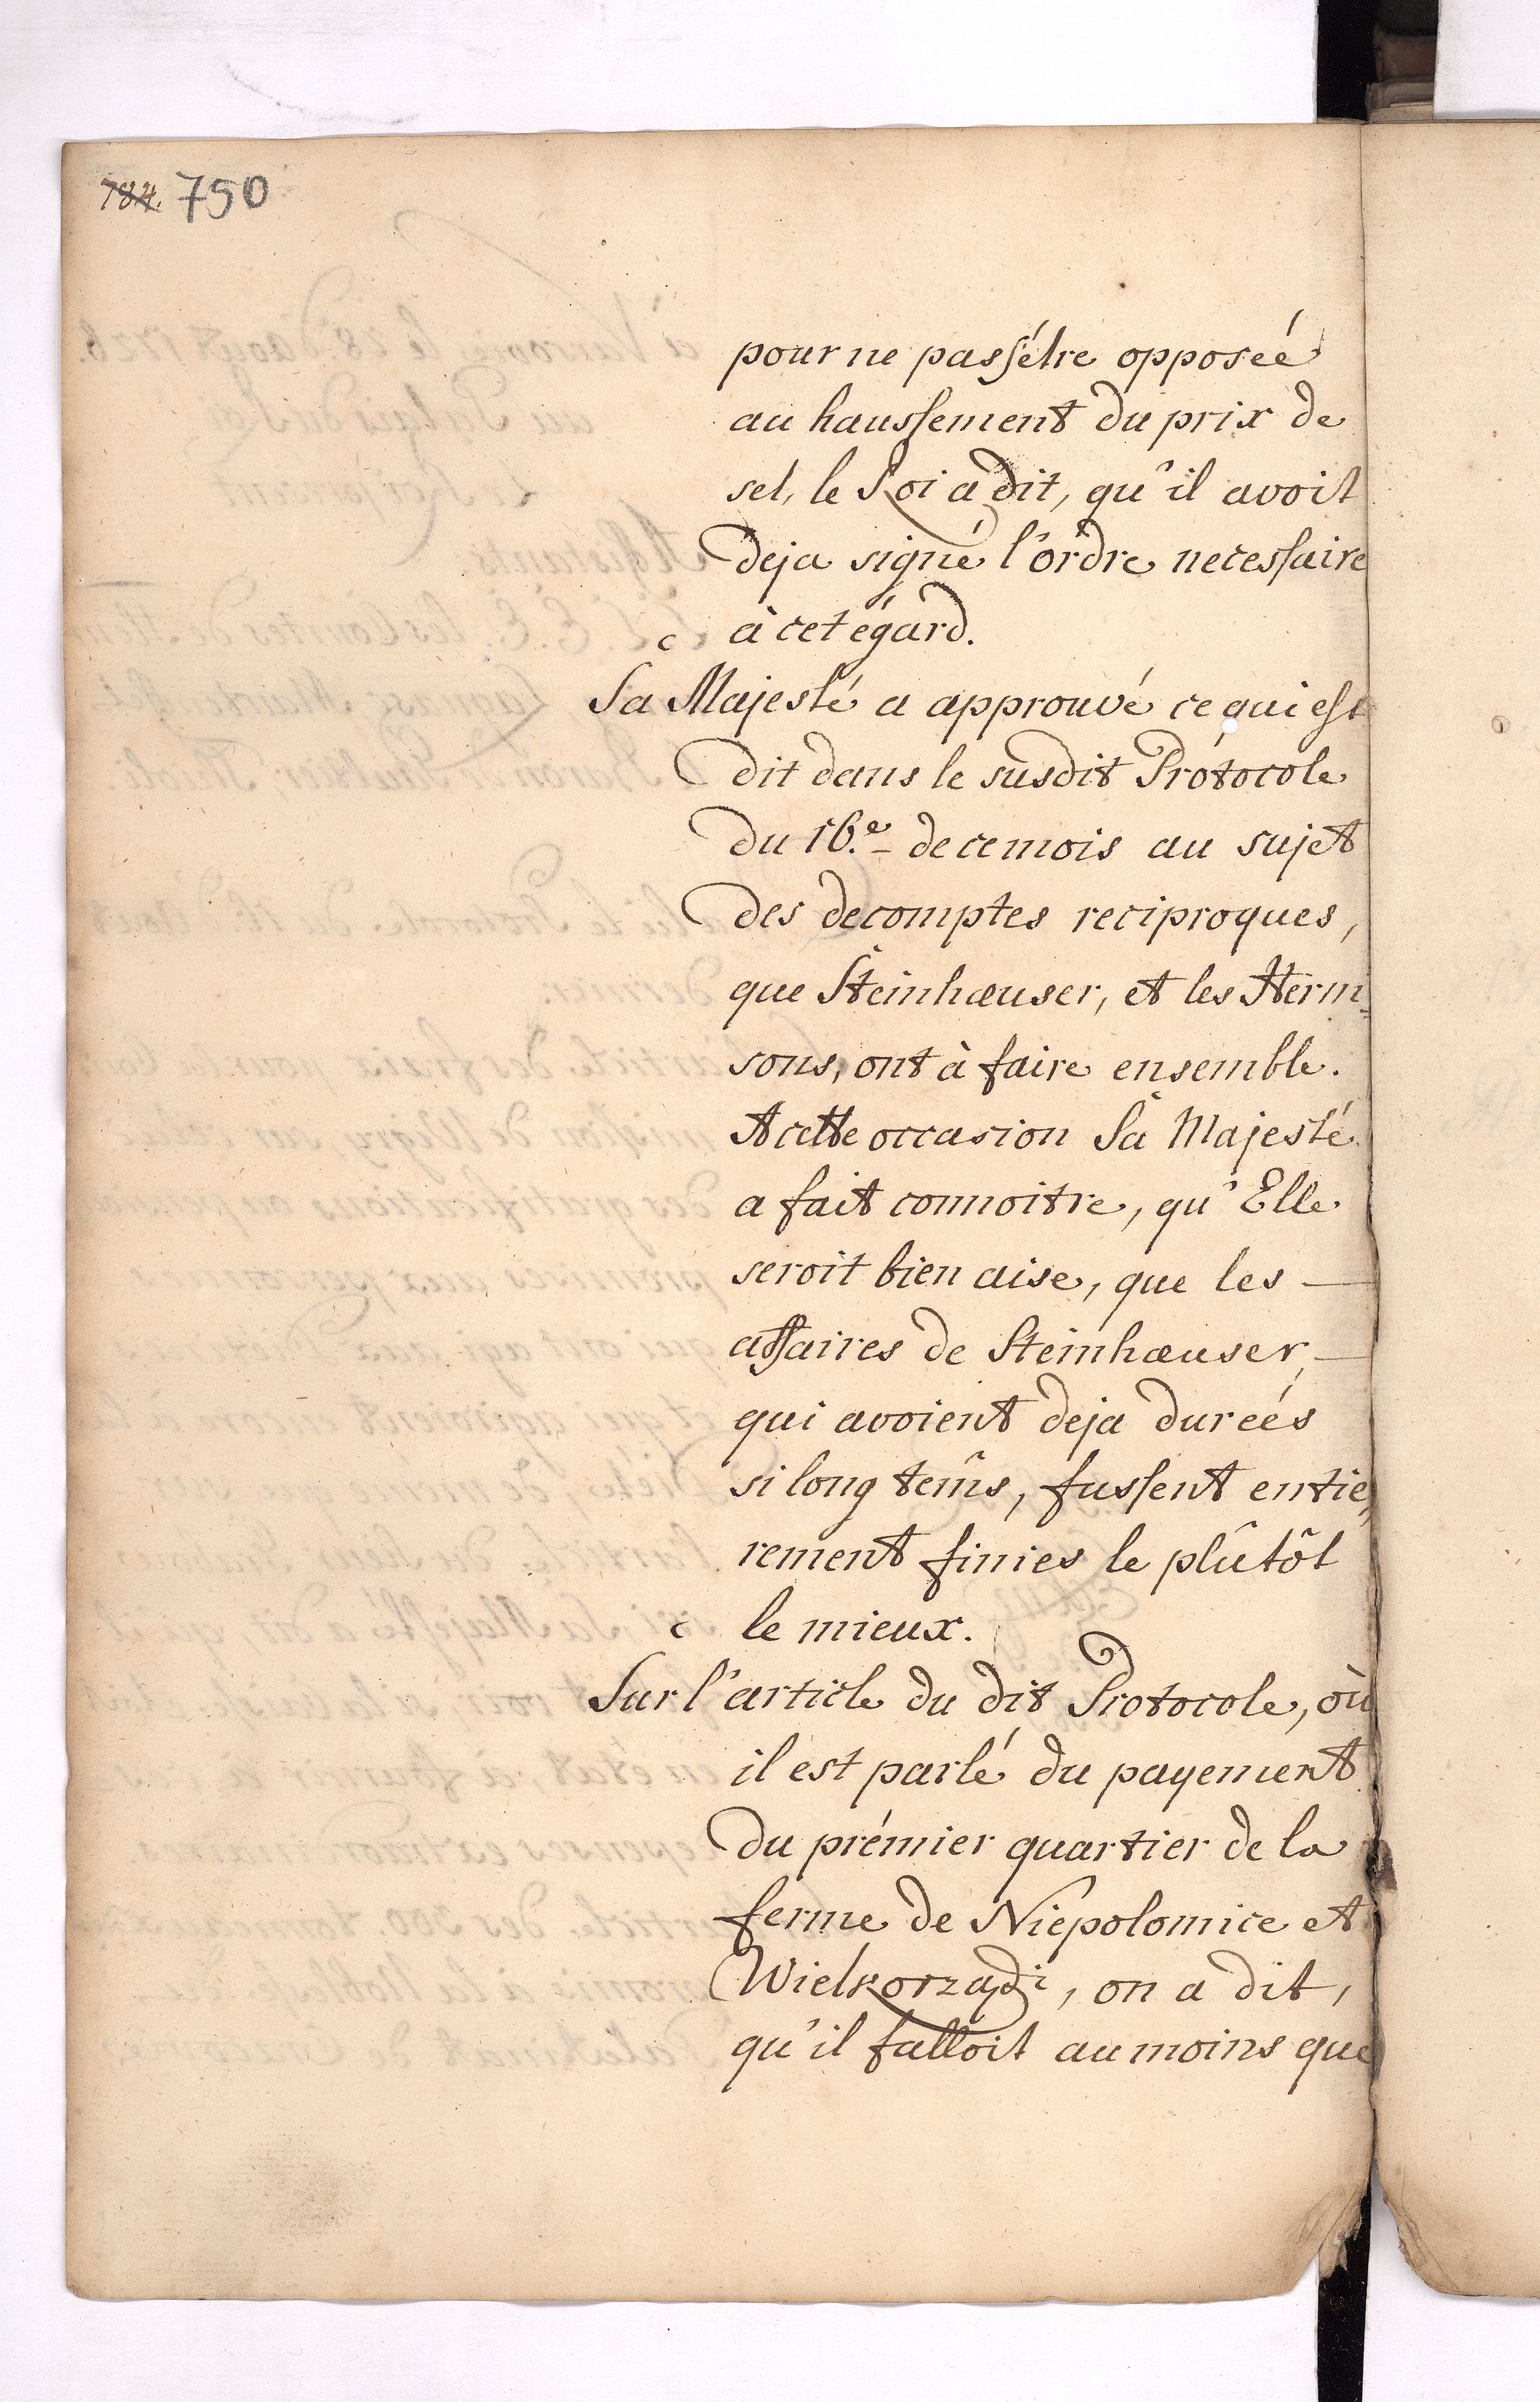 784. 750
pour ne pas s'étre opposéé
au haussement du prix de
sel, le Roi a dit, qu'il avoit
deja signé l'ordre necessaire
à cet égard.
Sa Majesté a approuvé ce qui est
dit dans le susdit Protocole
du 16.e de ce mois au sujet
des decomptes reciproques,
que Steinhæuser, et les Herm=
sons, ont à faire ensemble.
A cette occasion Sa Majesté
a fait connoitre, qu'Elle
seroit bien aise, que les —
affaires de Steinhæuser, —
qui avoient deja duréés
si long tem̃s, fussent entie=
rement finies le plûtôt
le mieux.
Sur l'article du dit Protocole, où
il est parlé du payement
du prémier quartier de la
ferme de Niepolomice et
Wielkorządi, on a dit,
qu'il falloit au moins que